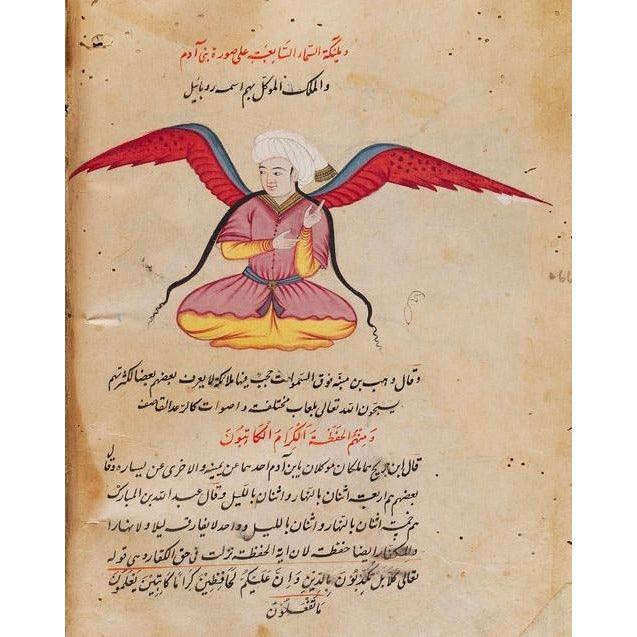 وملئكة السماء السابعة على صورة بنى آدم
والملك الموكل بهم اسمه روبائيل
وقال وهب بن منبه فوق السموات حجب فيها ملائكة لا يعرف بعضهم بعضا لكثرتهم
يسبحون الله تعالى بلغات مختلفة واصوات كالرعد القاصف
ومنهم الحفظة الكرام الكاتبون
قال ابن جريج هما ملكان موكلان بابن آدم احدهما عن يمينه والاخرى عن يساره وقال
بعضهم هم اربعة اثنان بالنهار واثنان بالليل وقال عبد الله بن المبارك
هم خمسة اثنان بالنهار واثنان بالليل وواحد لا يفارقه ليلا ولا نهارا
والكفار ايضا حفظة لان اية الحفظة نزلت فى حق الكفار وهى قوله
تعالى كلا بل تكذبون بالدين وان عليكم لحافظين كراما كاتبين يعلمون
ما تفعلون